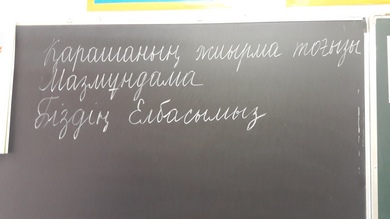 Қарашаның жиырма тоғызы
Мазмұндама
Біздің Елбасымыз